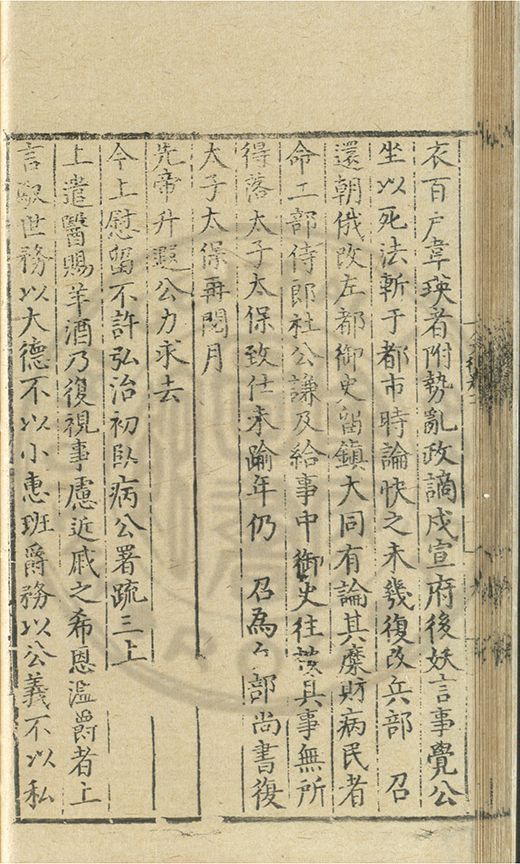 衣百户韋瑛者附勢亂政謫戍宣府後妖言事覺公
坐以死法斬于都市時論快之未幾復改兵部 召
還朝俄改左都御史留鎮大同有論其糜財病民者
命工部侍郎杜公謙及給事中御史往覈其事無所
得落太子太保致仕未踰年仍 召為 部尚書復
太子太保再閱月
先帝升遐公力求去
今上慰留不許弘治初臥病公署疏三上
上遣醫賜羊酒乃復視事慮近戚之希恩濫爵者上
言馭世務以大德不以小惠班爵務以公義不以私